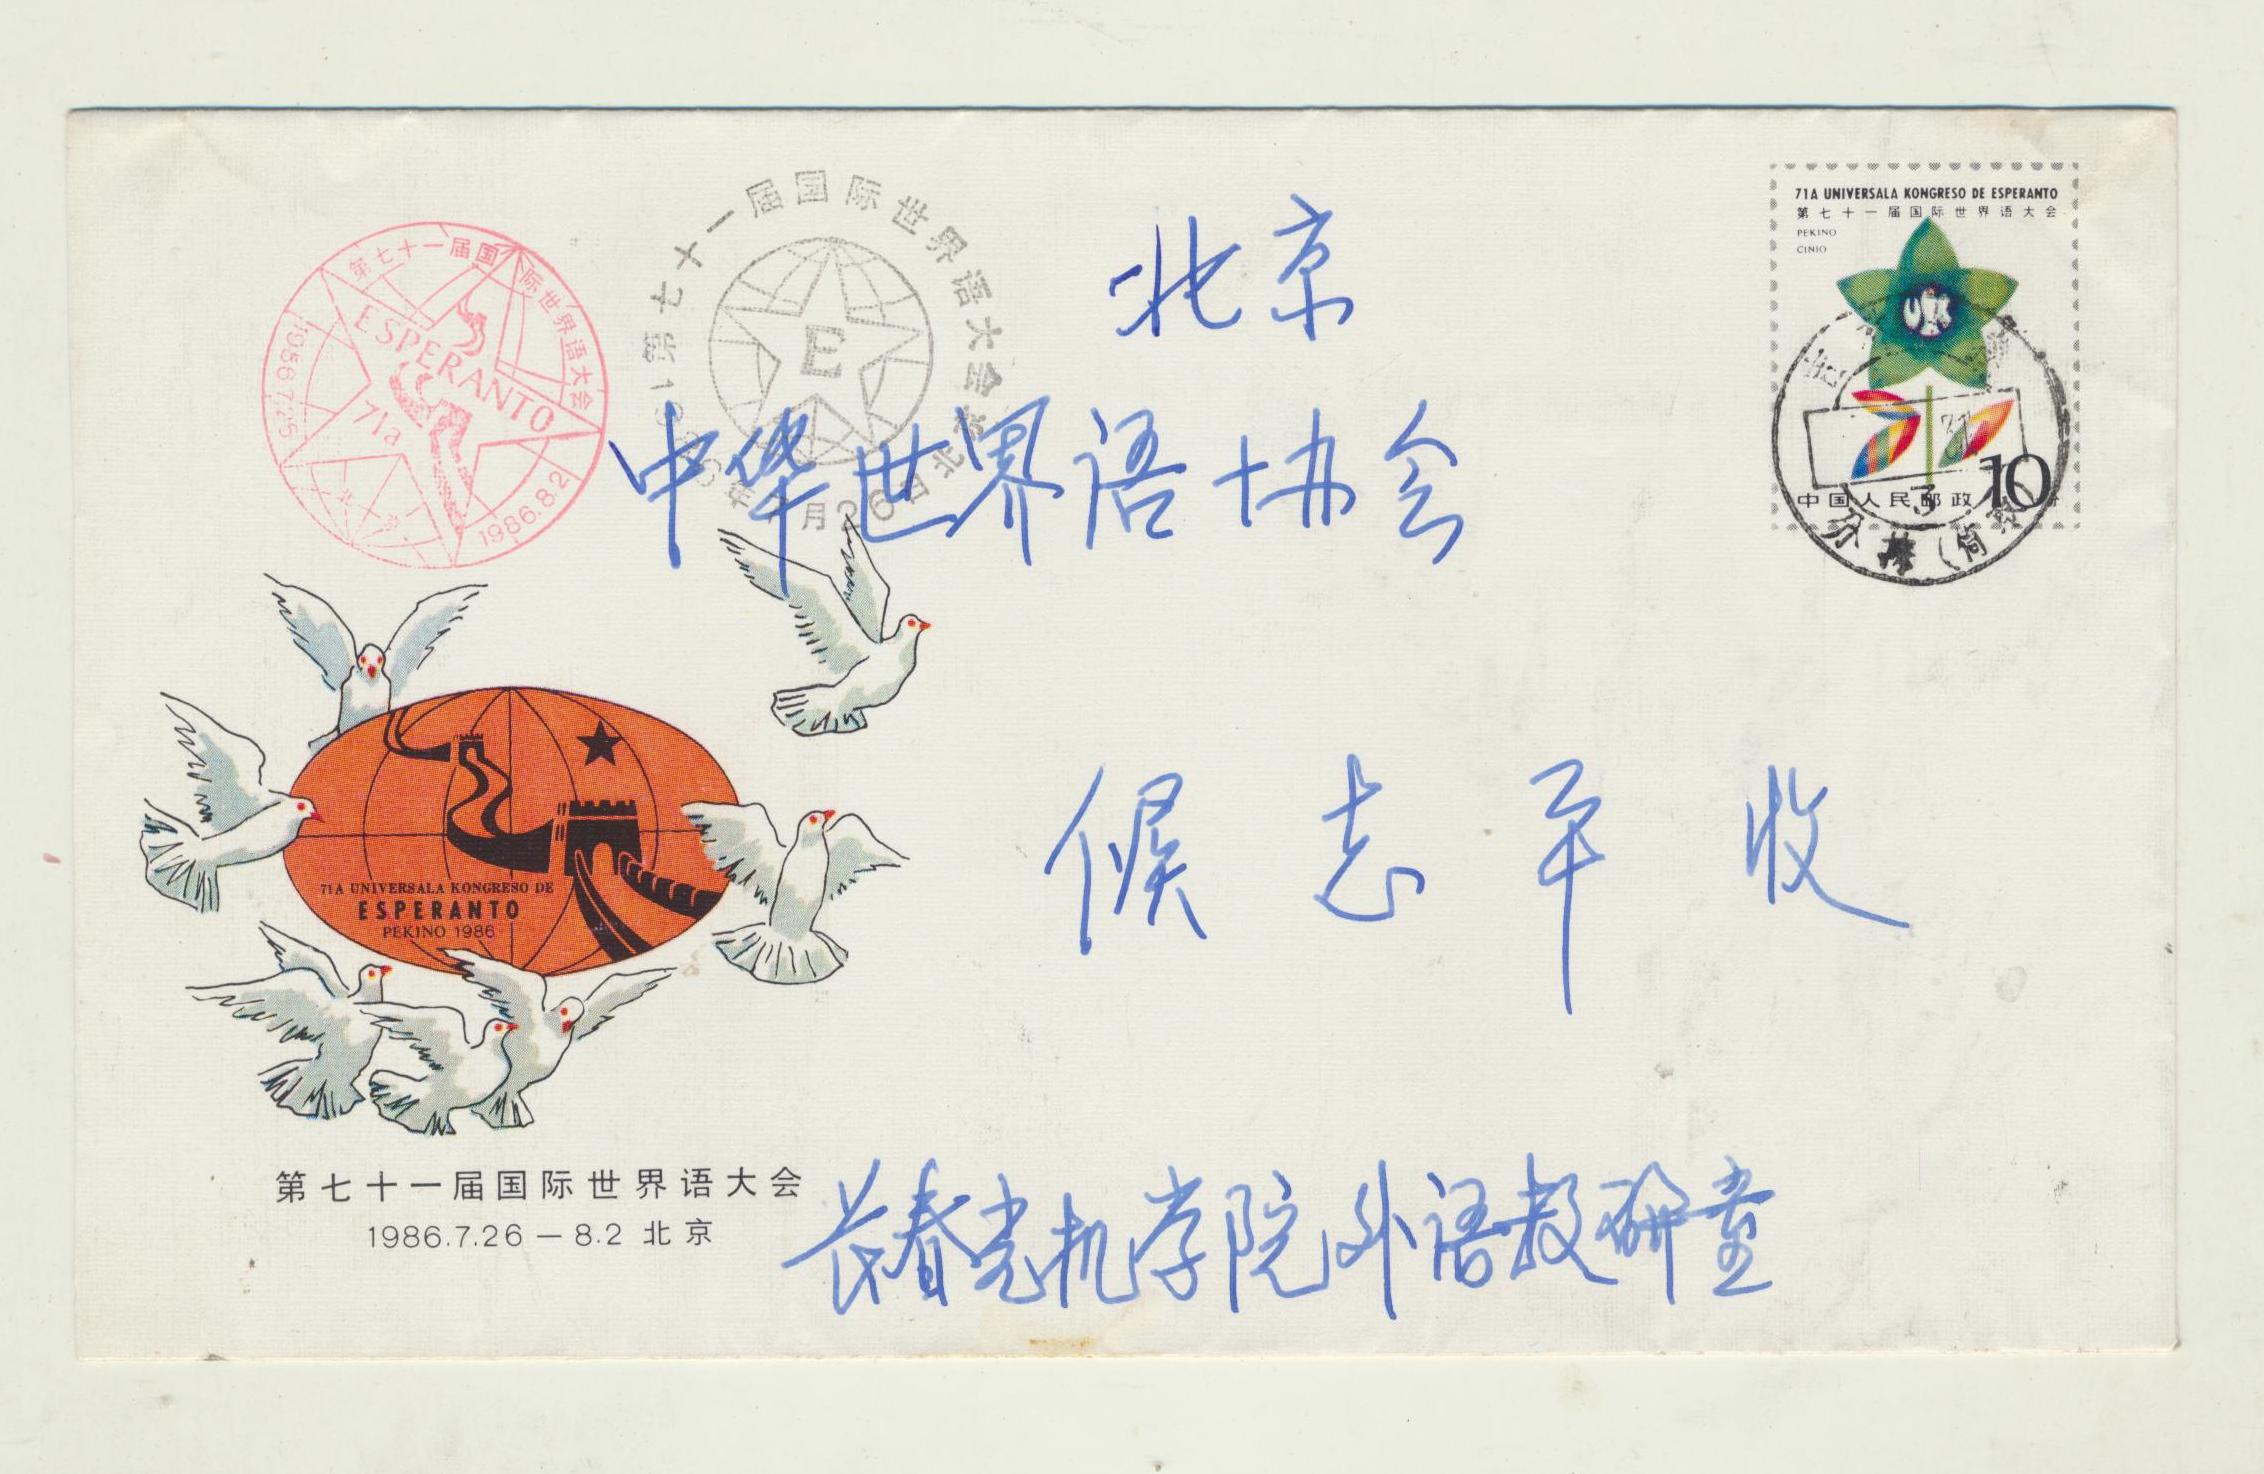 71A UNIVERSALA KONGRESO DE ESPERANTO
第七十一届国际世界语大会
PEKINO
CINIO
10
中国人民邮政
第七十一届国际世界语大会
ESPERANTO
71a
1986.7.26
1986.8.2
北京
第七十一届国际世界语大会
E
月26日北
北京
中华世界语协会
候志平 收
71A UNIVERSALA KONGRESO DE
ESPERANTO
PEKINO 1986
第七十一届国际世界语大会
1986.7.26 — 8.2 北京
长春光机学院外语教研室